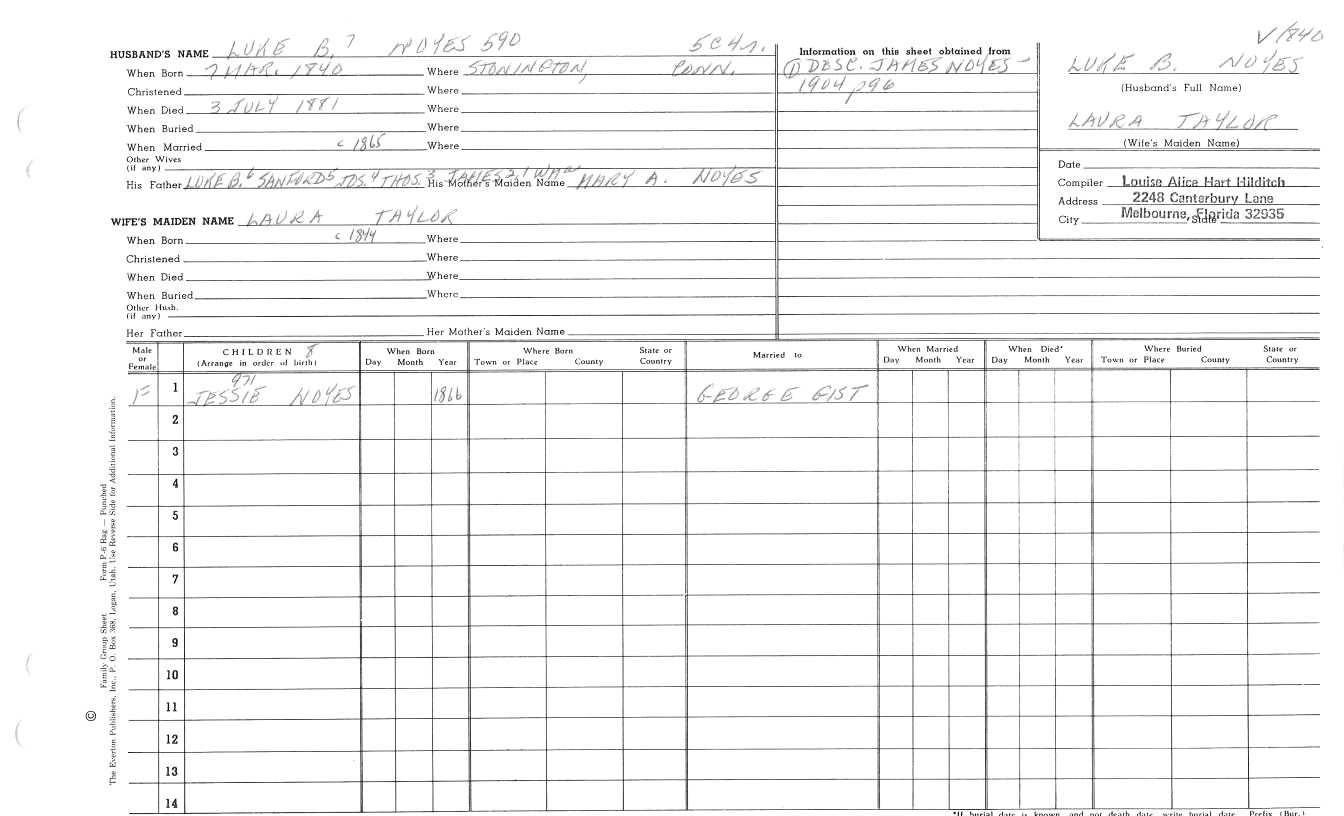 V/1840
HUSBAND'S NAME LUKE B.7 NOYES 590 5C4r.
When Born 7 MAR. 1840 Where STONINGTON, CONN.
Christened Where
When Died 3 JULY 1881 Where
When Buried Where
When Married c 1865 Where
Other Wives
(if any)
His Father LUKE B.6 SANFORD5 JOS.4 THOS.3 JAMES2,1 WM His Mother's Maiden Name MARY A. NOYES
WIFE'S MAIDEN NAME LAURA TAYLOR
When Born c 1844 Where
Christened Where
When Died Where
When Buried Where
Other Husb.
(if any)
Her Father Her Mother's Maiden Name
Information on this sheet obtained from
① DESC. JAMES NOYES -
1904 p96
LUKE B. NOYES
(Husband's Full Name)
LAURA TAYLOR
(Wife's Maiden Name)
Date
Compiler Louise Alice Hart Hilditch
Address 2248 Canterbury Lane
City Melbourne, Florida 32935 State
Male or Female
CHILDREN 8
(Arrange in order of birth)
When Born
Day Month Year
Where Born
Town or Place County State or Country
Married to
When Married
Day Month Year
When Died*
Day Month Year
Where Buried
Town or Place County State or Country
971
F 1 JESSIE NOYES 1866 GEORGE GIST
2
3
4
5
6
7
8
9
10
11
12
13
14
Family Group Sheet Form P-6 Rag — Punched
© The Everton Publishers, Inc., P. O. Box 368, Logan, Utah. Use Reverse Side for Additional Information.
*If burial date is known, and not death date, write burial date. Prefix (Bur.)